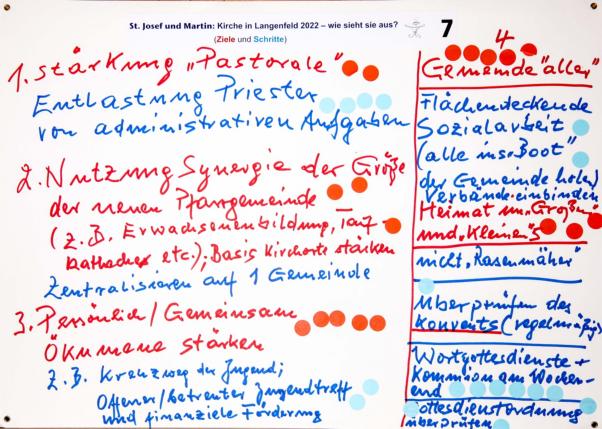 St. Josef und Martin: Kirche in Langenfeld 2022 – wie sieht sie aus?
(Ziele und Schritte)
7
1. Stärkung „Pastorale"
Entlastung Priester
von administrativen Aufgaben
2. Nutzung Synergie der Größe
der neuen Pfarrgemeinde
(z.B. Erwachsenenbildung, Tauf-
katechese etc.); Basis Kirchorte stärken
Zentralisieren auf 1 Gemeinde
3. Persönlich/Gemeinsam
Ökumene stärken
z.B. Kreuzweg der Jugend;
Offener/betreuter Jugendtreff
und finanziele Förderung
4
Gemeinde "aller"
Flächendeckende
Sozialarbeit
(alle ins "Boot"
der Gemeinde holen)
Verbände einbinden
Heimat im „Großen"
und „Kleinen"
nicht „Rasenmäher"
Überprüfen des
Konvents (regelmäßig)
Wortgottesdienste +
Kommunion am Wochen-
end
Gottesdienstordnung
überprüfen